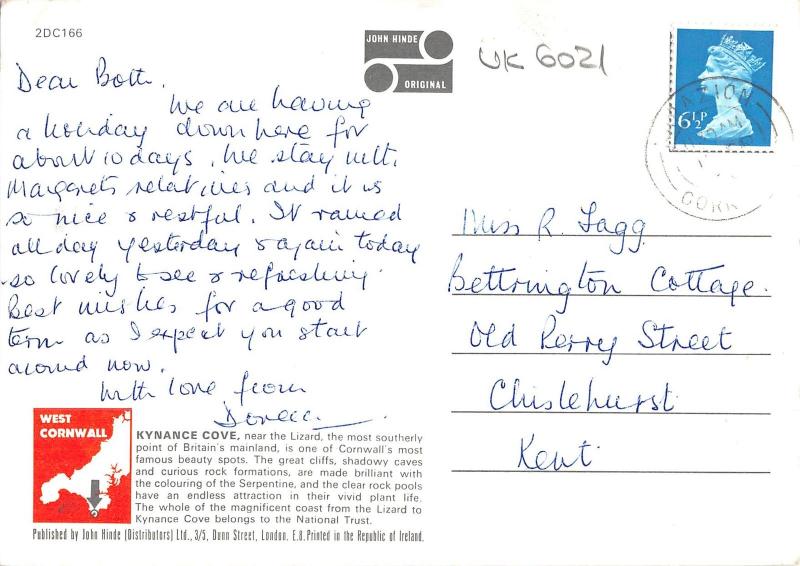 2DC166
JOHN HINDE
ORIGINAL
UK 6021
6½P
Dear Both.
We are having
a holiday down here for
about 10 days. We stay with
Margarets relatives and it is
so nice & restful. It rained
all day yesterday & again today
so lovely to see & refreshing.
Best wishes for a good
term as I expect you start
around now.
With love from
Miss R. Fagg.
Bettrington Cottage.
Old Perry Street
Chislehurst
Kent
WEST
CORNWALL
KYNANCE COVE, near the Lizard, the most southerly
point of Britain's mainland, is one of Cornwall's most
famous beauty spots. The great cliffs, shadowy caves
and curious rock formations, are made brilliant with
the colouring of the Serpentine, and the clear rock pools
have an endless attraction in their vivid plant life.
The whole of the magnificent coast from the Lizard to
Kynance Cove belongs to the National Trust.
Published by John Hinde (Distributors) Ltd., 3/5, Dunn Street, London, E.8. Printed in the Republic of Ireland.